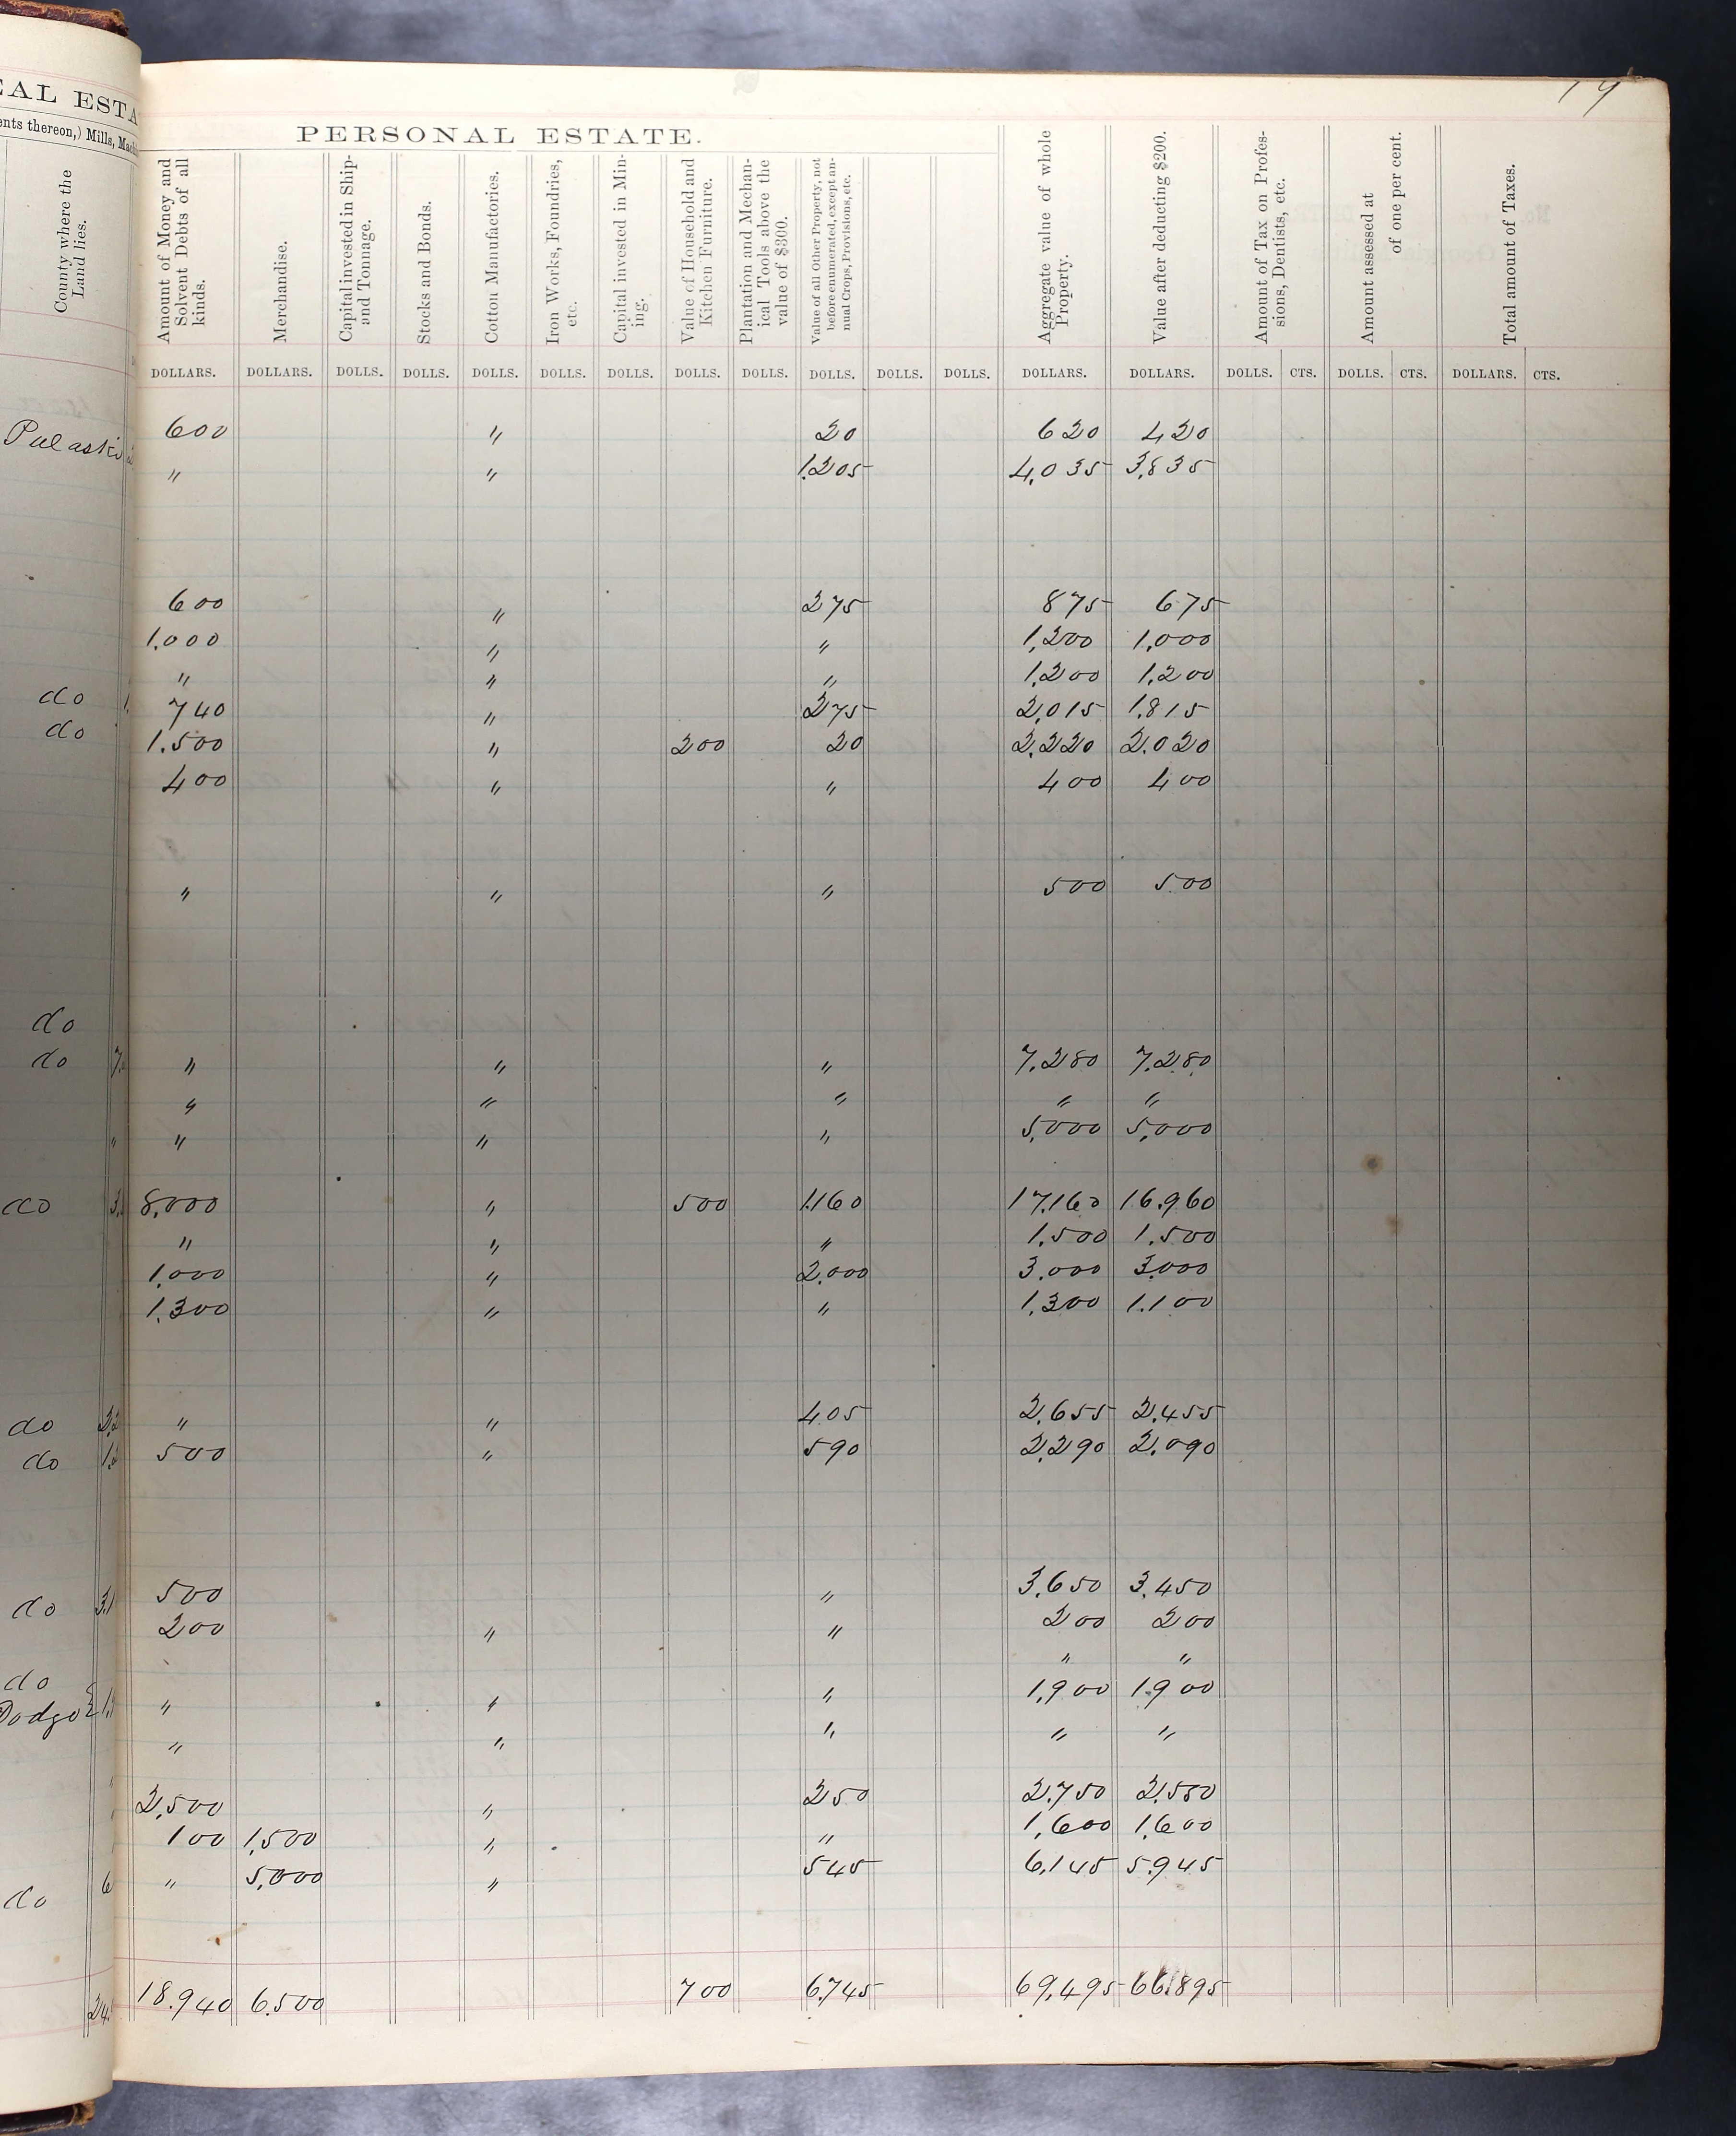 EAL ESTA
ents thereon,) Mills, Mach
19
PERSONAL ESTATE.
County where the Land lies.
Amount of Money and Solvent Debts of all kinds.
Merchandise.
Capital invested in Shipping and Tonnage.
Stocks and Bonds.
Cotton Manufactories.
Iron Works, Foundries, etc.
Capital invested in Mining.
Value of Household and Kitchen Furniture.
Plantation and Mechanical Tools above the value of $300.
Value of all Other Property, not before enumerated, except annual Crops, Provisions, etc.
Aggregate value of whole Property.
Value after deducting $200.
Amount of Tax on Professions, Dentists, etc.
Amount assessed at of one per cent.
Total amount of Taxes.
DOLLARS. DOLLARS. DOLLS. DOLLS. DOLLS. DOLLS. DOLLS. DOLLS. DOLLS. DOLLS. DOLLS. DOLLS. DOLLARS. DOLLARS. DOLLS. CTS. DOLLS. CTS. DOLLARS. CTS.
600 " 20 620 420
Pulaski " " 1.205 4,035 3,835
600 " 275 875 675
1.000 " " 1,200 1,000
" " " 1,200 1,200
do 740 " 275 2,015 1.815
do 1.500 " 200 20 2.220 2.020
400 " " 400 400
" " " 500 500
do
do " " " 7.280 7.280
" " " " "
" " " 5,000 5,000
do 8,000 " 500 1.160 17.160 16.960
" " " 1.500 1.500
1,000 " 2,000 3.000 3.000
1.300 " " 1,300 1.100
do " " 405 2.655 2.455
do 500 " 590 2.290 2.090
do 500 " 3.650 3.450
200 " " 200 200
do " "
Dodge " " " 1,900 1.900
" " " " "
2,500 " 250 2.750 2.550
100 1,500 " " 1,600 1,600
do " 5,000 " 545 6,145 5.945
18.940 6.500 700 6.745 69,495 66.895